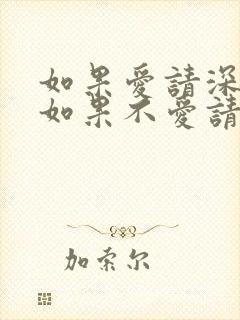 如果愛請深
如果不愛請
加索尔